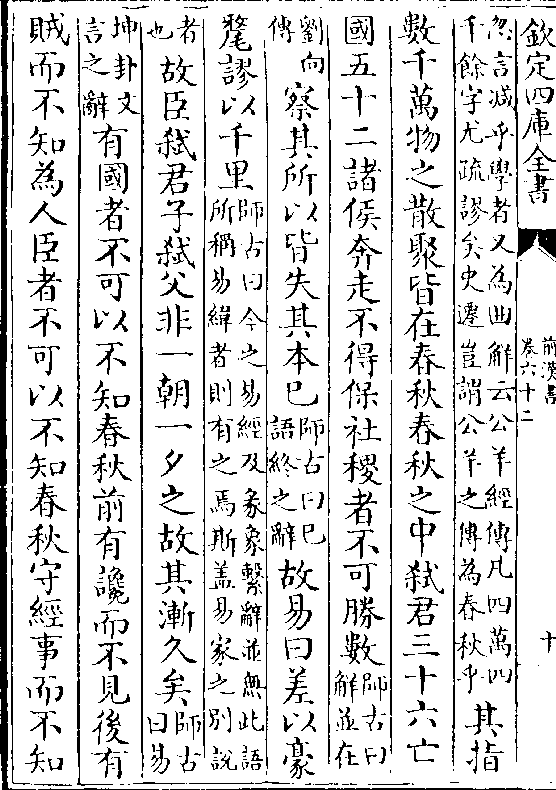 欽定四庫全書
前漢書
卷六十二
十
忽言減乎學者又為曲解云公羊經傳凡四萬四
千餘字尤疏謬矣史遷豈謂公羊之傳為春秋乎
其指
數千萬物之散聚皆在春秋春秋之中弑君三十六亡
國五十二諸侯奔走不得保社稷者不可勝數
師古曰
解並在
劉向
傳
察其所以皆失其本已
師古曰已
語終之辭
故易曰差以豪
氂謬以千里
師古曰今之易經及彖象繫辭並無此語
所稱易緯者則有之焉斯蓋易家之别說
者
也
故臣弑君子弑父非一朝一夕之故其漸久矣
師古
曰易
坤卦文
言之辭
有國者不可以不知春秋前有讒而不見後有
賊而不知為人臣者不可以不知春秋守經事而不知